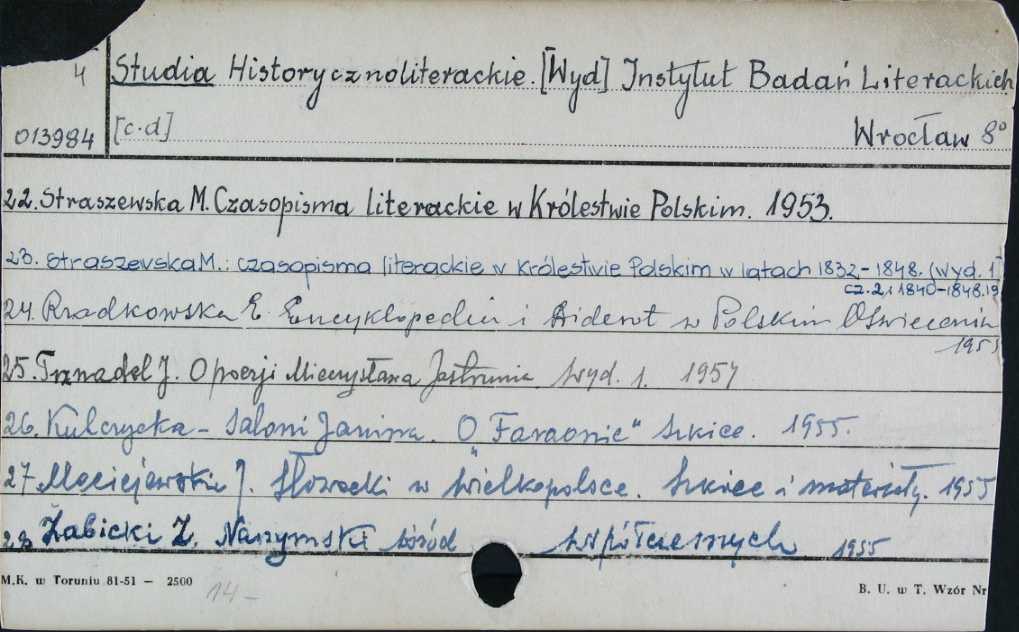 4 Studia Historycznoliterackie. [Wyd] Instytut Badań Literackich
013984 [c.d] Wrocław 8°
22. Straszewska M. Czasopisma literackie w Królestwie Polskim. 1953.
23. Straszewska M.: Czasopisma literackie w Królestwie Polskim w latach 1832-1848. (wyd. 1)
cz. 2, : 1840-1848. 19
24. Rzadkowska E. Encyklopedia i Diderot w Polskim Oświeceniu
1955
25. Trznadel J. O poezji Mieczysława Jastruna wyd. 1. 1954
26. Kulczycka - Saloni Janina. O „Faraonie" Szkice. 1955.
27 Maciejewski J. Słowacki w Wielkopolsce. Szkice i materiały. 1955
28 Żabicki Z. Narzymski wśród współczesnych 1955
M.K. w Toruniu 81-51 — 2500
14 -
B. U. w T. Wzór Nr